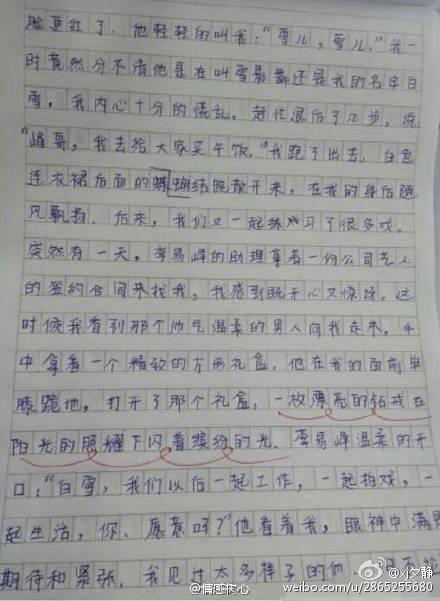 脸更红了，他轻轻的叫我："雪儿，雪儿。"我一
时竟然分不清他是在叫雪影舞还是我的名字白
雪，我内心十分的慌乱。赶忙退后了几步，说
"峰哥，我去给大家买午饭。"我跑了出去，白色
连衣裙后面的蝴蝶结既散开来，在我的身后随
风飘扬。后来，我们又一起练习了很多戏。
突然有一天，李易峰的助理拿着一份公司艺人
的签约合同来找我，我感到既开心又惊讶。这
时候我看到那个帅气温柔的男人向我走来，手
中拿着一个精致的方形礼盒，他在我的面前单
膝跪地，打开了那个礼盒，一枚漂亮的钻戒在
阳光的照耀下闪着缤纷的光。李易峰温柔的开
口："白雪，我们以后一起工作，一起拍戏，一
起生活，你，愿意吗？"他看着我，眼神中满是
期待和紧张，我见过太多样子的他，
@情感树心
@小夕静
weibo.com/u/2865255680